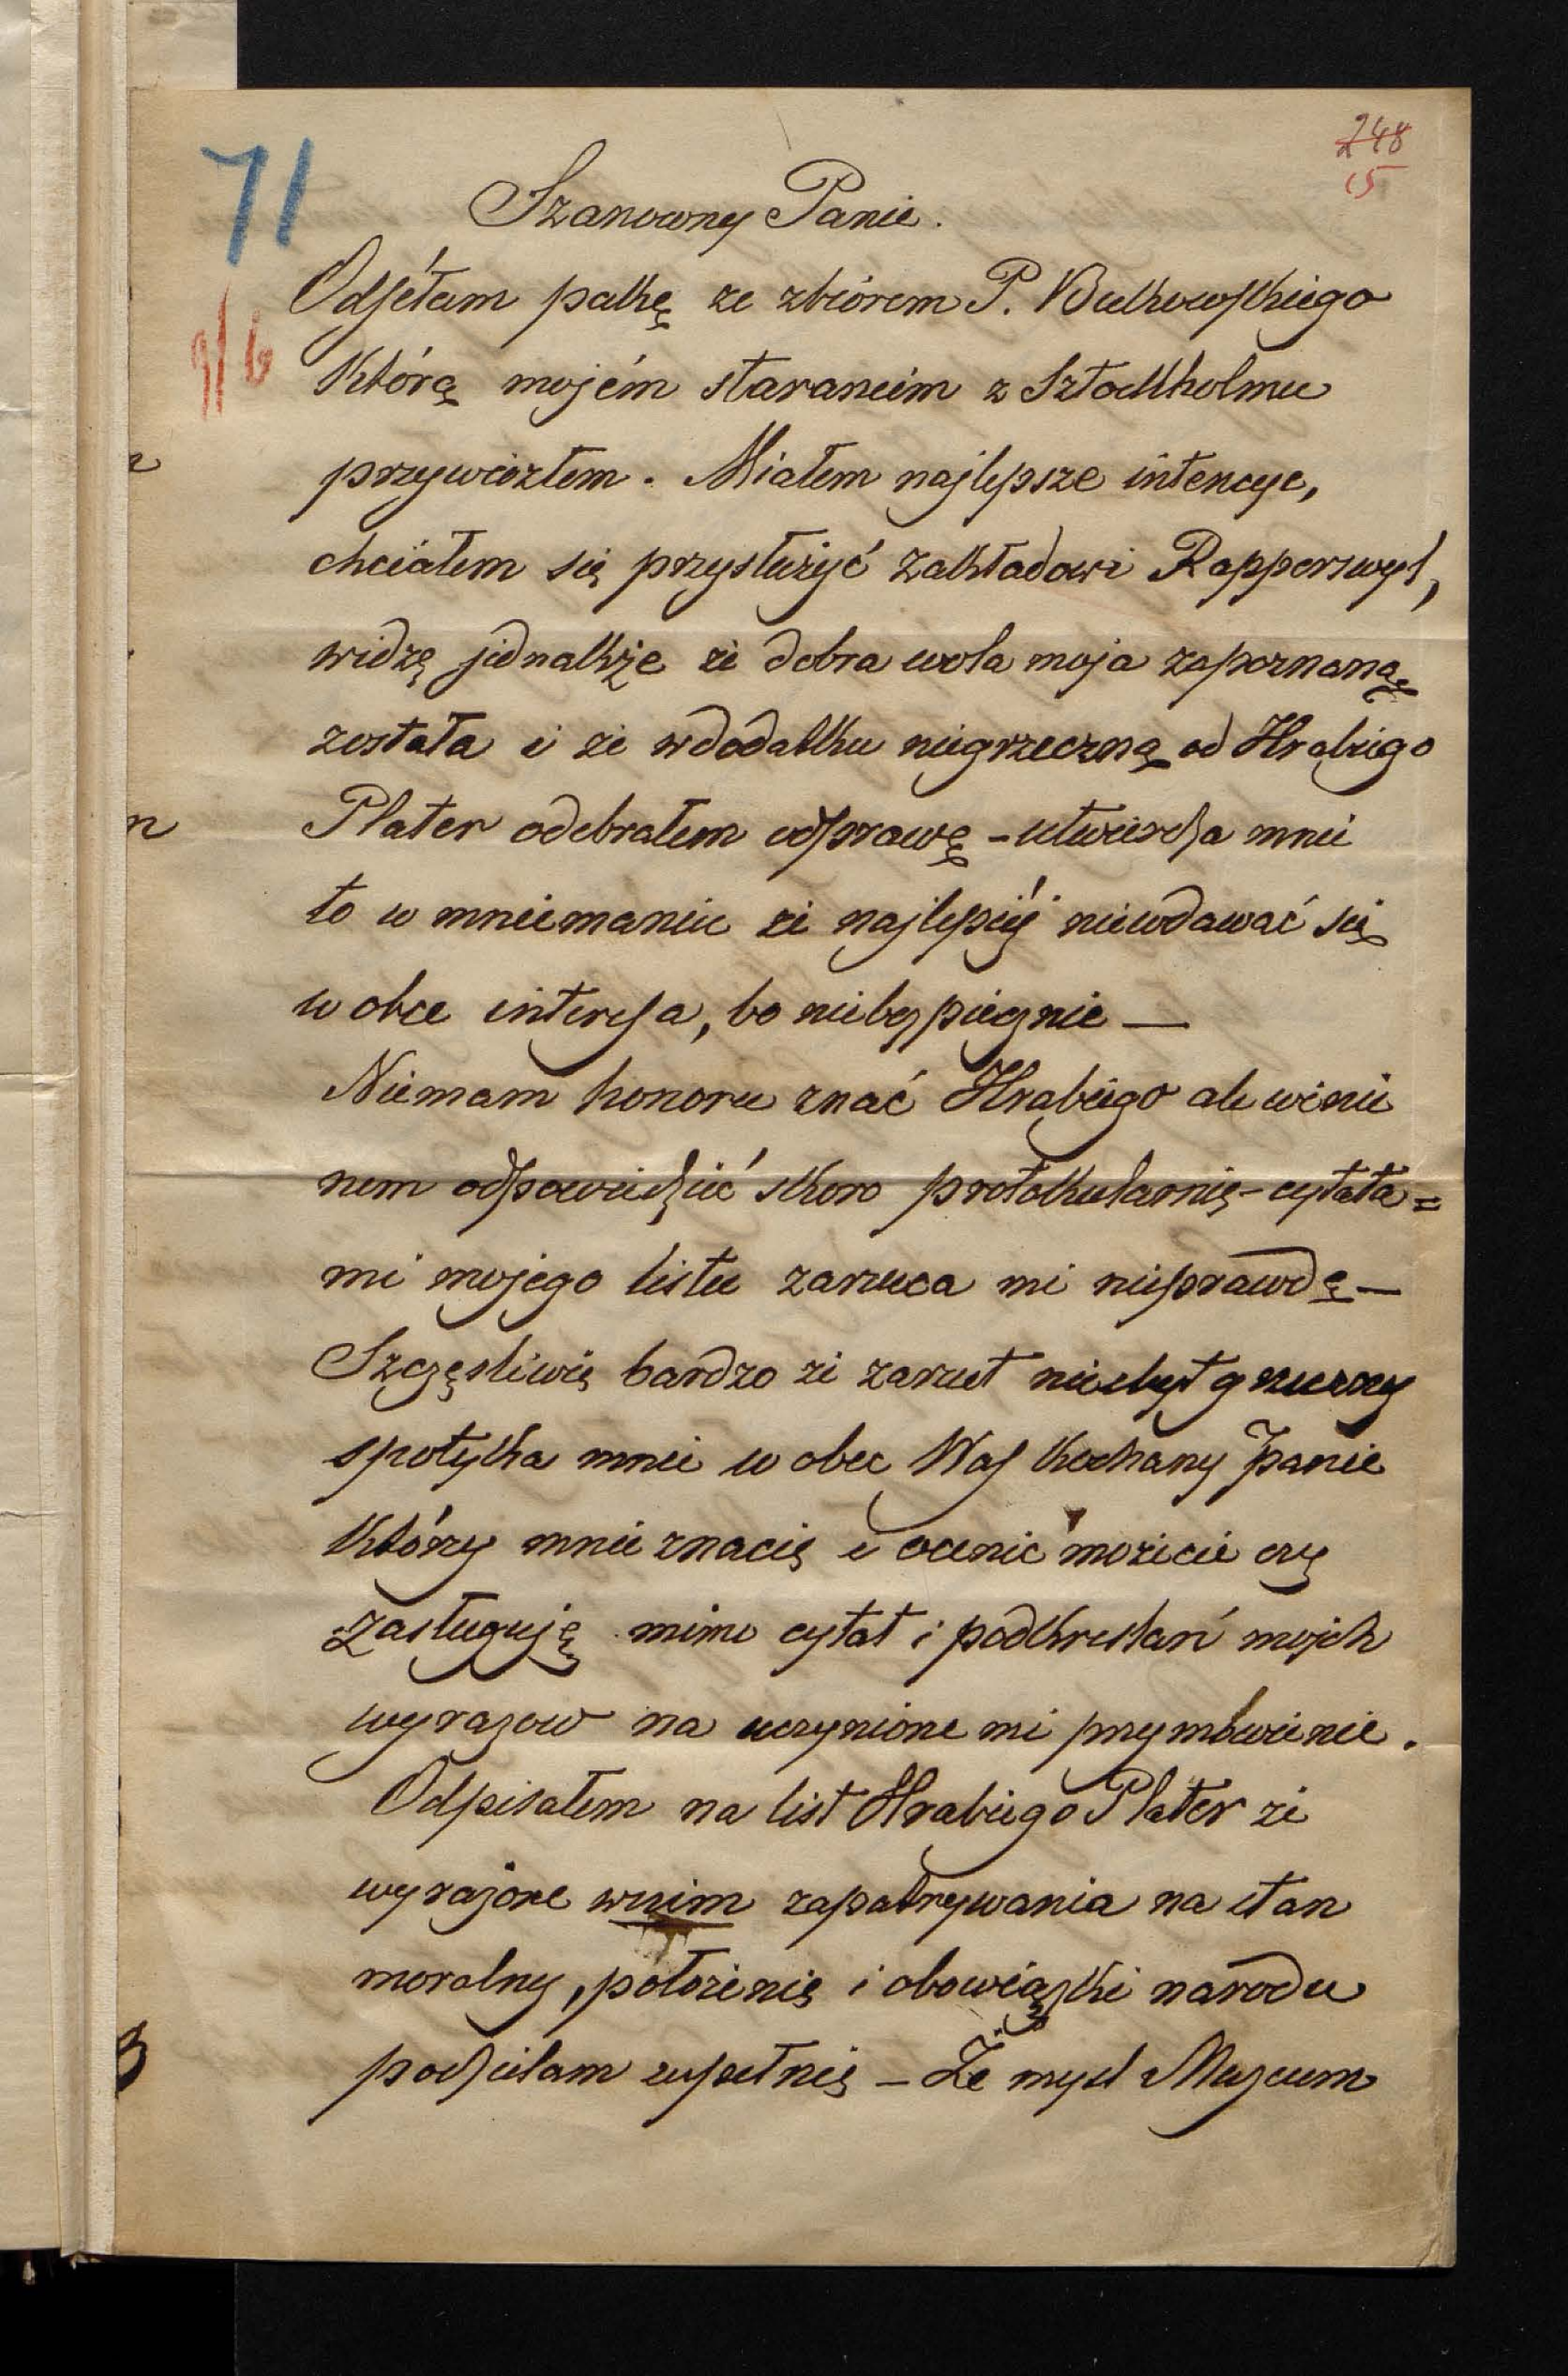 71
248
15
9/6
Szanowny Panie.
Odsełam pakę ze zbiórem P. Bukowskiego
którą mojém staraneim z Sztockholmu
przywiozłem. Miałem najlepsze intencye,
chciałem się przysłużyć Zakładowi Rapperswyl,
widzę jednakże że dobra wola moja zapoznaną
została i że w dodatku niegrzeczną od Hrabiego
Plater odebrałem odprawę - utwierdza mnie
to w mniemaniu że najlepiéj niewdawać się
w obce interesa, bo niebezpiecznie —
Niemam honoru znać Hrabiego ale winie
nem odpowiedzieć skoro protokularnie - cytata=
mi mojego listu zarzuca mi nieprawdę —
Szczęsliwie bardzo że zarzut niezbyt grzeczny
spotyka mnie w obec Was kochany Panie
który mnie znacie i ocenić możecie czy
zasługuję mimo cytat i podkreslań mojch
wyrazow na uczynione mi przymówienie.
Odpisałem na list Hrabiego Plater że
wyrażone wnim zapatrywania na stan
moralny, położenie i obowiązki narodu
podzielam zupełnie — Że mysl Muzeum
n
B